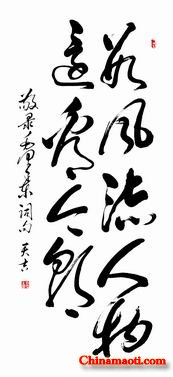 數風流人物
還看今朝
敬录毛泽东词句
Chinamaoti.com